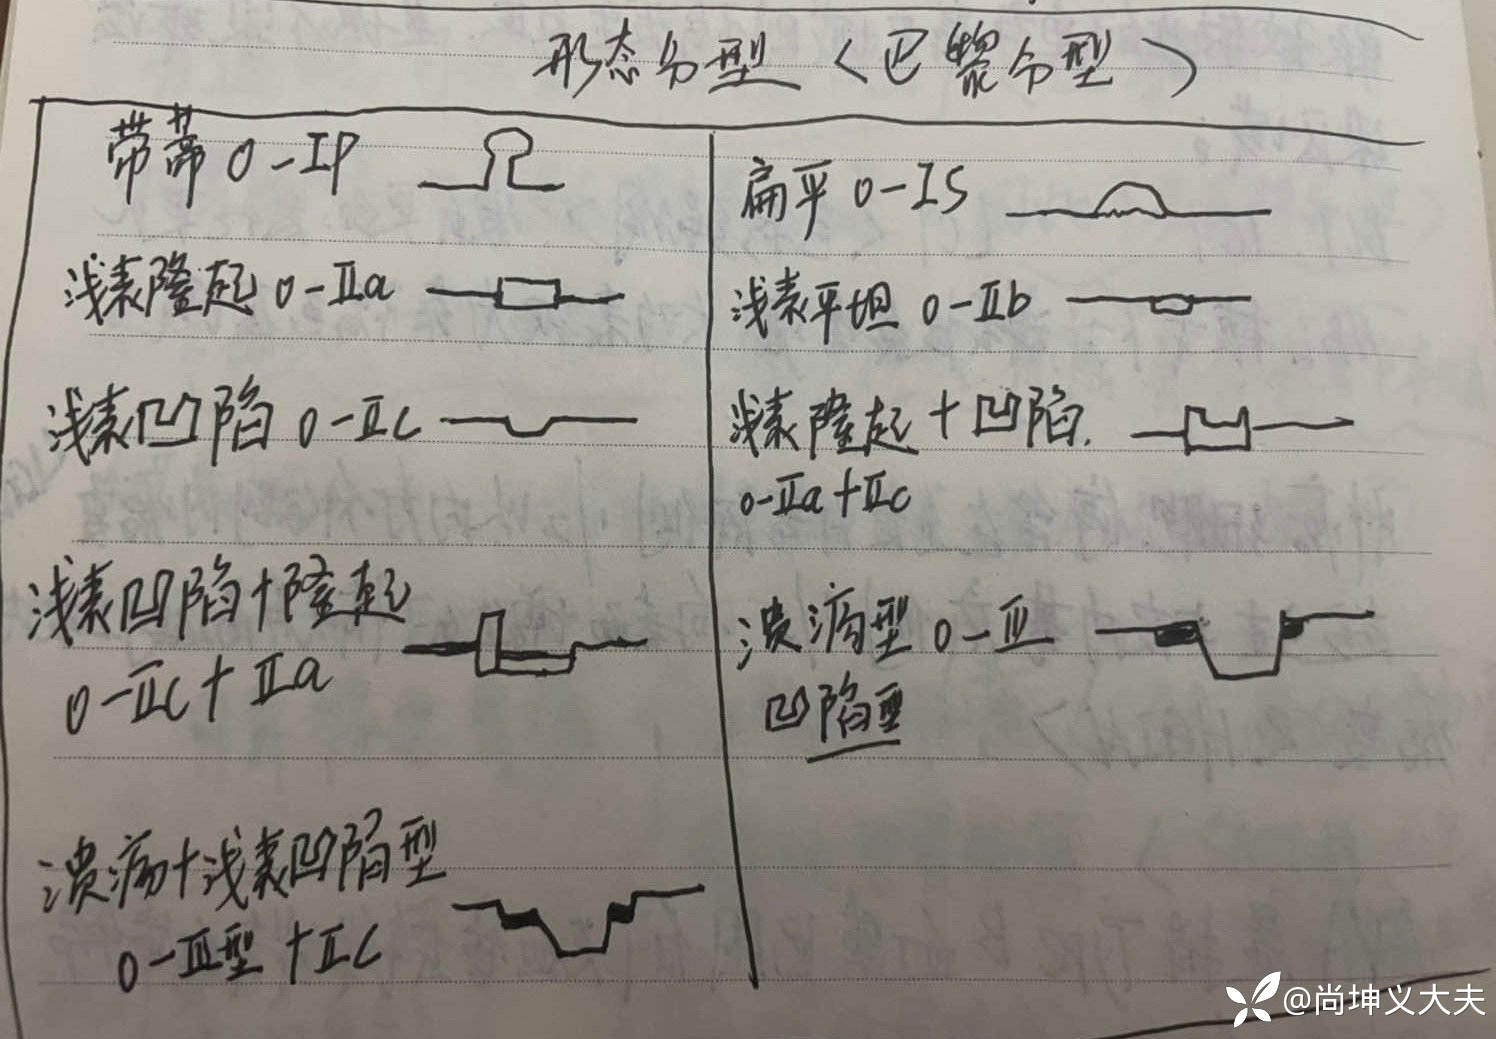 形态分型（巴黎分型）
带蒂 0-Ip
扁平 0-Is
浅表隆起 0-Ⅱa
浅表平坦 0-Ⅱb
浅表凹陷 0-Ⅱc
浅表隆起+凹陷.
0-Ⅱa+Ⅱc
浅表凹陷+隆起
0-Ⅱc+Ⅱa
溃疡型 0-Ⅲ
凹陷型
溃疡+浅表凹陷型
0-Ⅲ型+Ⅱc
@尚坤义大夫